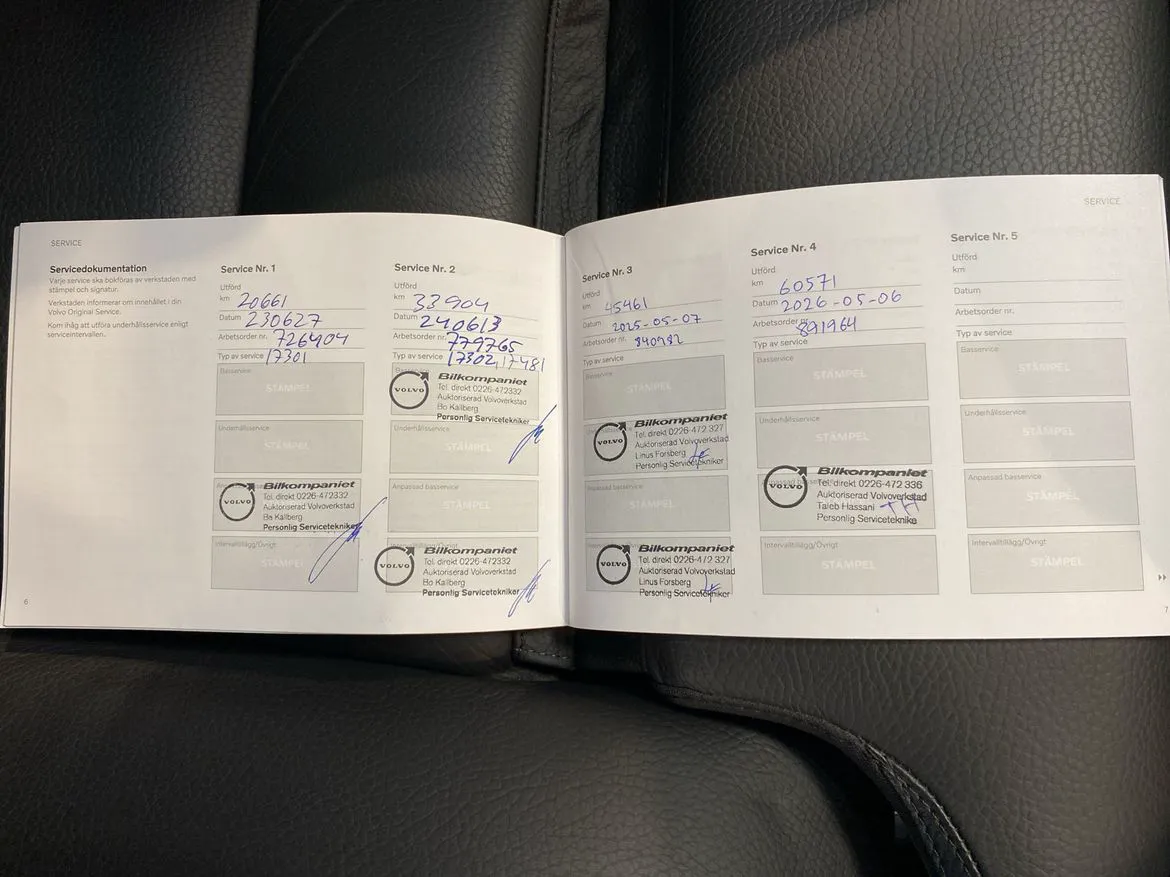 SERVICE
Servicedokumentation
Varje service ska bokföras av verkstaden med
stämpel och signatur.
Verkstaden informerar om innehållet i din
Volvo Original Service.
Kom ihåg att utföra underhållsservice enligt
serviceintervallen.
6
Service Nr. 1
Utförd
km 20661
Datum 230627
Arbetsorder nr. 726404
Typ av service 17301
Basservice
STÄMPEL
Underhållsservice
STÄMPEL
Anpassad basservice
VOLVO
Bilkompaniet
Tel. direkt 0226-472332
Auktoriserad Volvoverkstad
Bo Källberg
Personlig Servicetekniker
Intervalltillägg/Övrigt
STÄMPEL
Service Nr. 2
Utförd
km 33904
Datum 240613
Arbetsorder nr. 779765
Typ av service 17302, 17481
VOLVO
Bilkompaniet
Tel. direkt 0226-472332
Auktoriserad Volvoverkstad
Bo Källberg
Personlig Servicetekniker
Underhållsservice
STÄMPEL
Anpassad basservice
STÄMPEL
Intervalltillägg/Övrigt
VOLVO
Bilkompaniet
Tel. direkt 0226-472332
Auktoriserad Volvoverkstad
Bo Källberg
Personlig Servicetekniker
SERVICE
Service Nr. 3
Utförd
km 45461
Datum 2025-05-07
Arbetsorder nr. 840982
Typ av service
Basservice
STÄMPEL
VOLVO
Bilkompaniet
Tel. direkt 0226-472 327
Auktoriserad Volvoverkstad
Linus Forsberg
Personlig Servicetekniker
Anpassad basservice
STÄMPEL
Intervalltillägg/Övrigt
VOLVO
Bilkompaniet
Tel. direkt 0226-472 327
Auktoriserad Volvoverkstad
Linus Forsberg
Personlig Servicetekniker
Service Nr. 4
Utförd
km 60571
Datum 2026-05-06
Arbetsorder nr. 891964
Typ av service
Basservice
STÄMPEL
Underhållsservice
STÄMPEL
Anpassad basservice
VOLVO
Bilkompaniet
Tel. direkt 0226-472 336
Auktoriserad Volvoverkstad
Taleb Hassani TH
Personlig Serviceteknike
Intervalltillägg/Övrigt
STÄMPEL
Service Nr. 5
Utförd
km
Datum
Arbetsorder nr.
Typ av service
Basservice
STÄMPEL
Underhållsservice
STÄMPEL
Anpassad basservice
STÄMPEL
Intervalltillägg/Övrigt
STÄMPEL
7